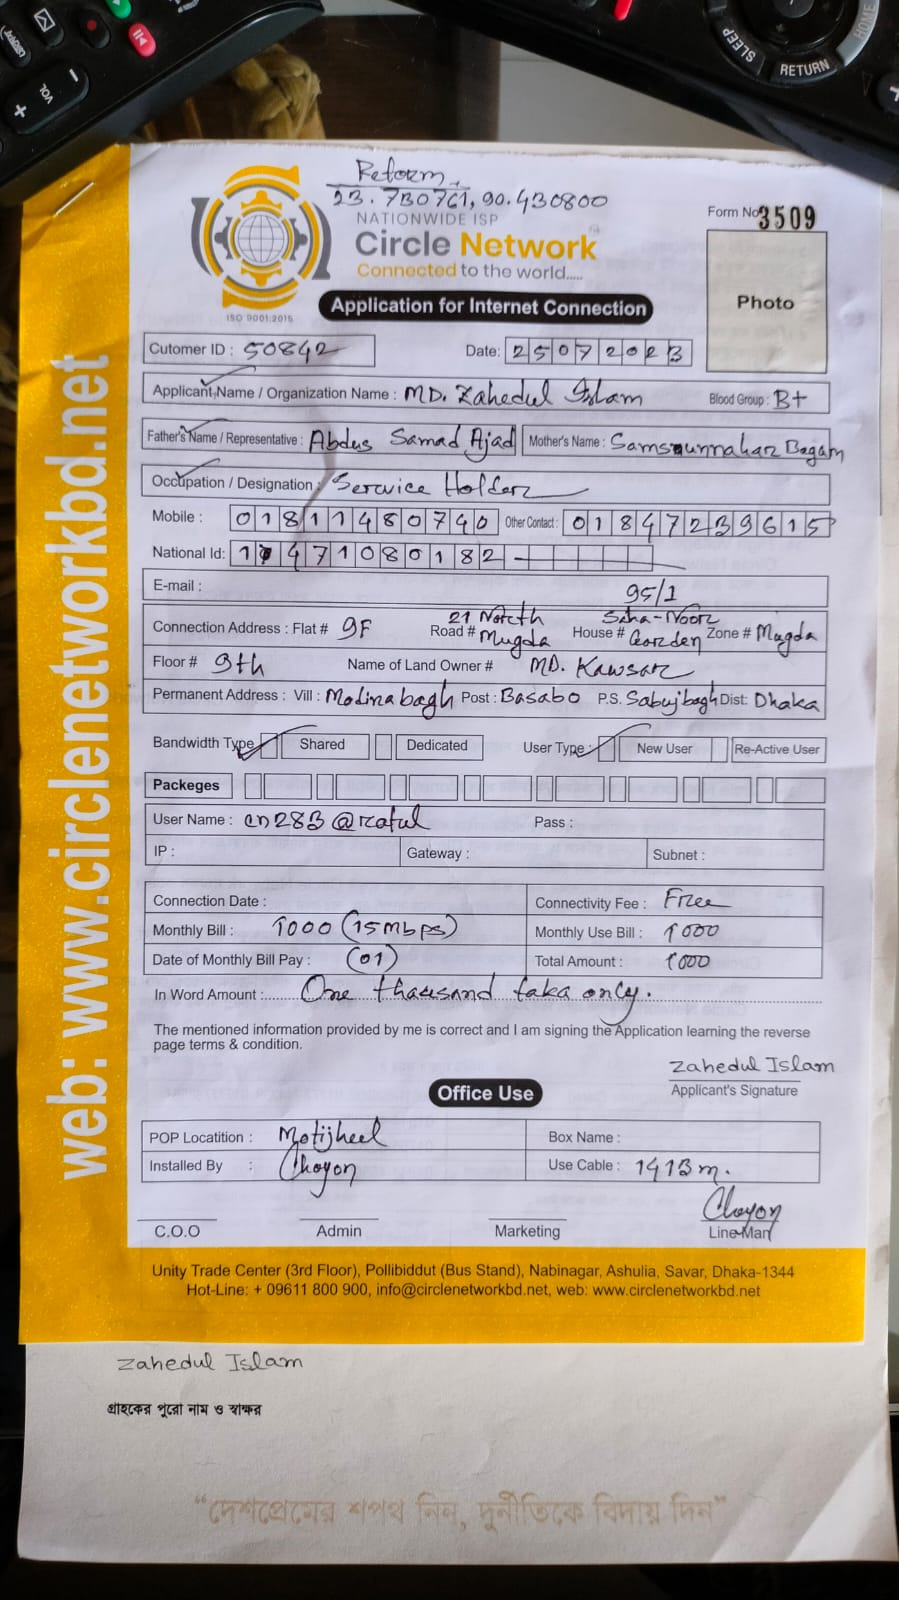 Reform
23.730761, 90.430800
NATIONWIDE ISP
Circle Network
Connected to the world.....
ISO 9001:2015
Form No 3509
Photo
Application for Internet Connection
Cutomer ID : 50842
Date: 25072023
Applicant Name / Organization Name : MD. Zahedul Islam Blood Group : B+
Father's Name / Representative : Abdus Samad Ajad Mother's Name : Samsunnahar Begam
Occupation / Designation : Service Holder
Mobile : 01811480740 Other Contact : 01847239615
National Id: 1471080182
E-mail :
95/1
Connection Address : Flat # 9F Road # 21 North Mugda House # Saha-Noor Gorden Zone # Mugda
Floor # 9th Name of Land Owner # MD. Kawsar
Permanent Address : Vill : Modinabagh Post : Basabo P.S. Sabujbagh Dist: Dhaka
Bandwidth Type Shared Dedicated User Type : New User Re-Active User
Packeges
User Name : cn283@ratul Pass :
IP : Gateway : Subnet :
Connection Date : Connectivity Fee : Free
Monthly Bill : 1000 (15mbps) Monthly Use Bill : 1000
Date of Monthly Bill Pay : (01) Total Amount : 1000
In Word Amount : One thausand taka only.
The mentioned information provided by me is correct and I am signing the Application learning the reverse
page terms & condition.
Zahedul Islam
Applicant's Signature
Office Use
POP Locatition : Motijheel Box Name :
Installed By : Choyon Use Cable : 1413m.
Choyon
C.O.O Admin Marketing Line Man
Unity Trade Center (3rd Floor), Pollibiddut (Bus Stand), Nabinagar, Ashulia, Savar, Dhaka-1344
Hot-Line: + 09611 800 900, info@circlenetworkbd.net, web: www.circlenetworkbd.net
web: www.circlenetworkbd.net
Zahedul Islam
গ্রাহকের পুরো নাম ও স্বাক্ষর
“দেশপ্রেমের শপথ নিন, দুর্নীতিকে বিদায় দিন”
VOL
SLEEP
RETURN
HOME